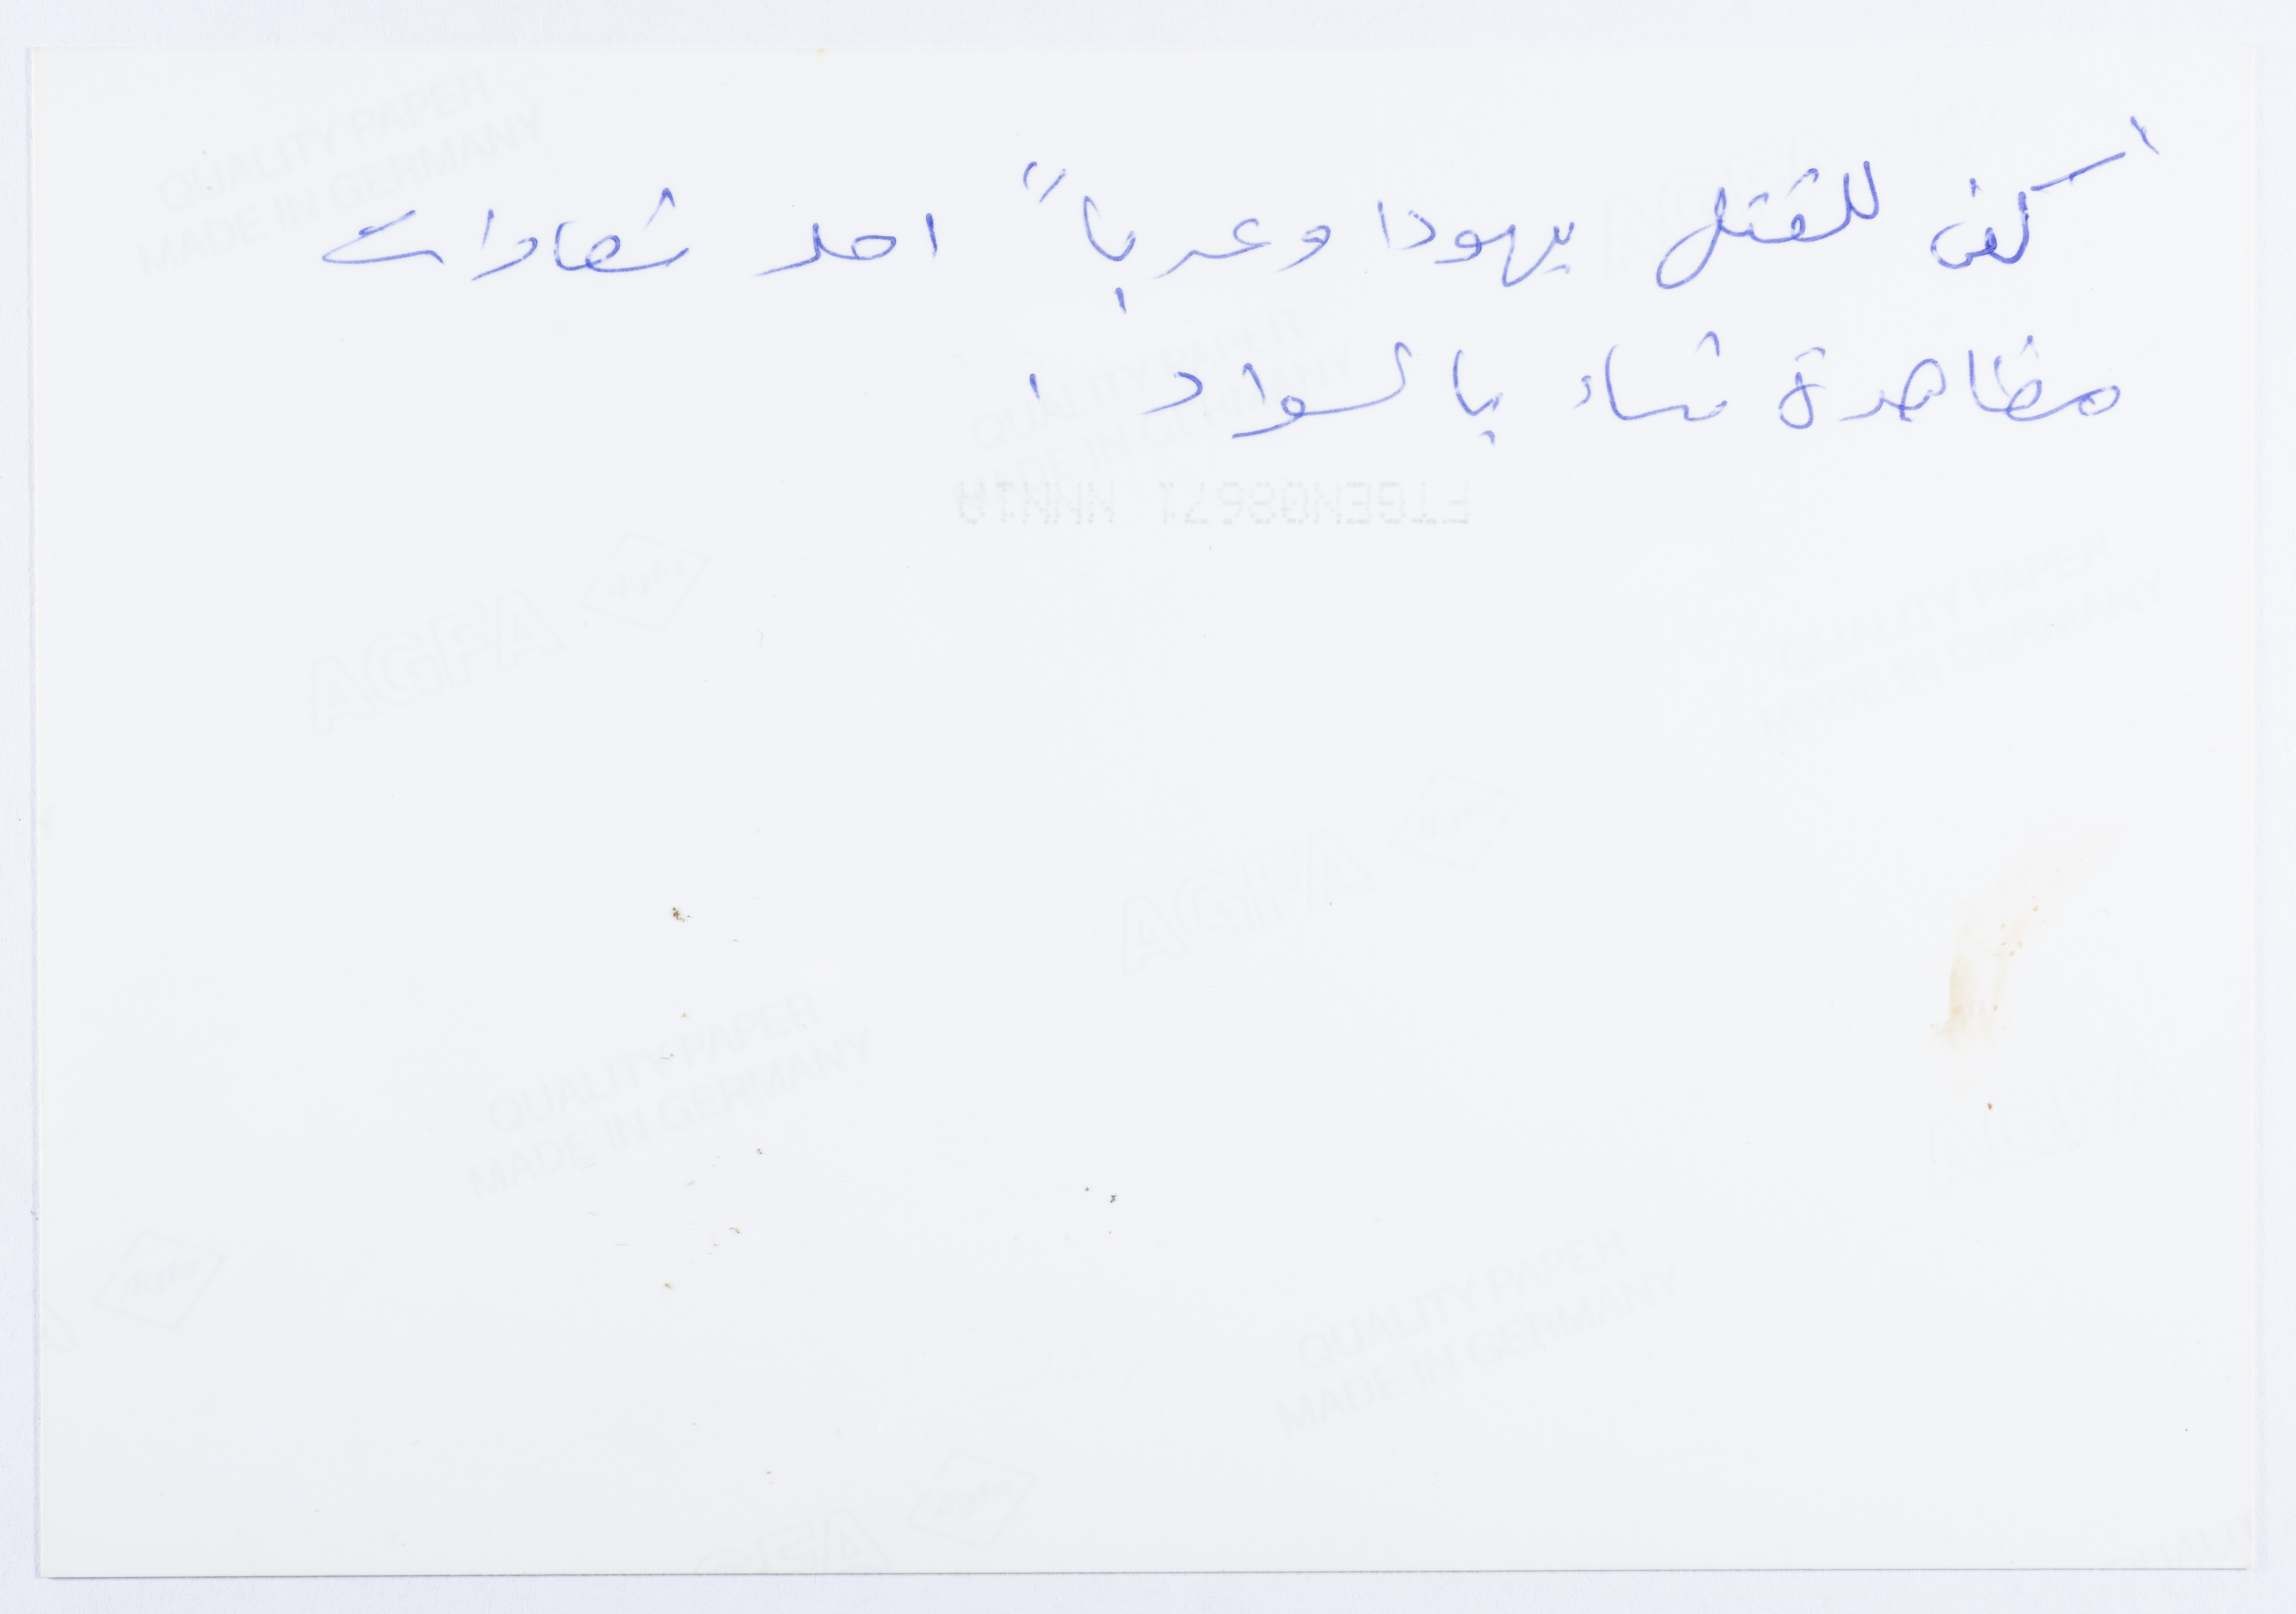 "كفى للقتل يهودا وعربا" احد شعارات
مظاهرة نساء بالسواد .
QUALITY PAPER
MADE IN GERMANY
QUALITY PAPER
MADE IN GERMANY
AGFA Agfa
QUALITY PAPER
MADE IN GERMANY
AGFA Agfa
QUALITY PAPER
MADE IN GERMANY
AGFA
Agfa
QUALITY PAPER
MADE IN GERMANY
Agfa